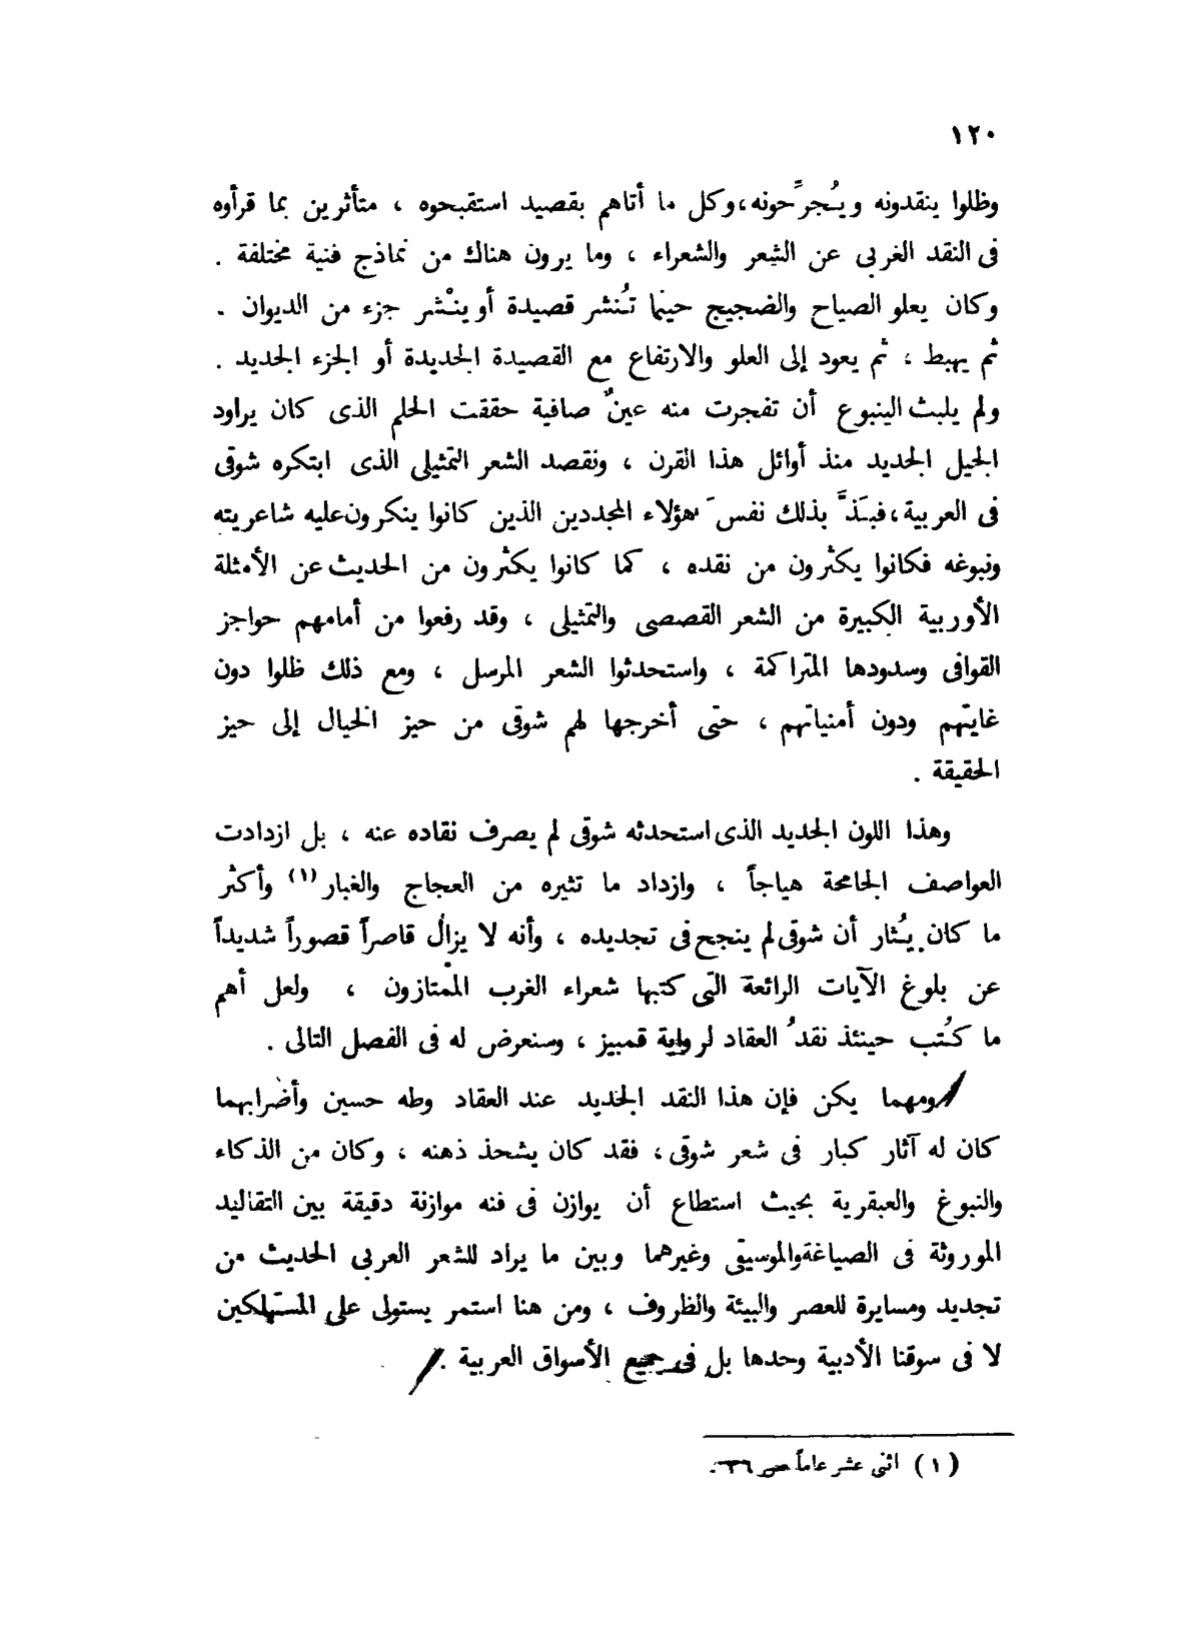 ١٢٠
وظلوا ينقدونه ويُجرِّحونه، وكل ما أتاهم بقصيد استقبحوه ، متأثرين بما قرأوه
فى النقد الغربى عن الشعر والشعراء ، وما يرون هناك من نماذج فنية مختلفة .
وكان يعلو الصياح والضجيج حينما تُنشر قصيدة أو ينْشر جزء من الديوان .
ثم يهبط ، ثم يعود إلى العلو والارتفاع مع القصيدة الجديدة أو الجزء الجديد .
ولم يلبث الينبوع أن تفجرت منه عينٌ صافية حققت الحلم الذى كان يراود
الجيل الجديد منذ أوائل هذا القرن ، ونقصد الشعر التمثيلى الذى ابتكره شوقى
فى العربية، فبَذَّ بذلك نفسَ هؤلاء المجددين الذين كانوا ينكرون عليه شاعريته
ونبوغه فكانوا يكثرون من نقده ، كما كانوا يكثرون من الحديث عن الأمثلة
الأوربية الكبيرة من الشعر القصصى والتمثيلى ، وقد رفعوا من أمامهم حواجز
القوافى وسدودها المتراكمة ، واستحدثوا الشعر المرسل ، ومع ذلك ظلوا دون
غايتهم ودون أمنياتهم ، حتى أخرجها لهم شوقى من حيز الخيال إلى حيز
الحقيقة .
وهذا اللون الجديد الذى استحدثه شوقى لم يصرف نقاده عنه ، بل ازدادت
العواصف الجامحة هياجاً ، وازداد ما تثيره من العجاج والغبار (١) وأكثر
ما كان يُثار أن شوقى لم ينجح فى تجديده ، وأنه لا يزال قاصراً قصوراً شديداً
عن بلوغ الآيات الرائعة التى كتبها شعراء الغرب الممتازون ، ولعل أهم
ما كُتب حينئذ نقدُ العقاد لرواية قمبيز ، وسنعرض له فى الفصل التالى .
ومهما يكن فإن هذا النقد الجديد عند العقاد وطه حسين وأضرابهما
كان له آثار كبار فى شعر شوقى، فقد كان يشحذ ذهنه ، وكان من الذكاء
والنبوغ والعبقرية بحيث استطاع أن يوازن فى فنه موازنة دقيقة بين التقاليد
الموروثة فى الصياغة والموسيقى وغيرهما وبين ما يراد للشعر العربى الحديث من
تجديد ومسايرة للعصر والبيئة والظروف ، ومن هنا استمر يستولى على المستهلكين
لا فى سوقنا الأدبية وحدها بل فى جميع الأسواق العربية .
(١) اثنى عشر عاماً ص ٣٦.